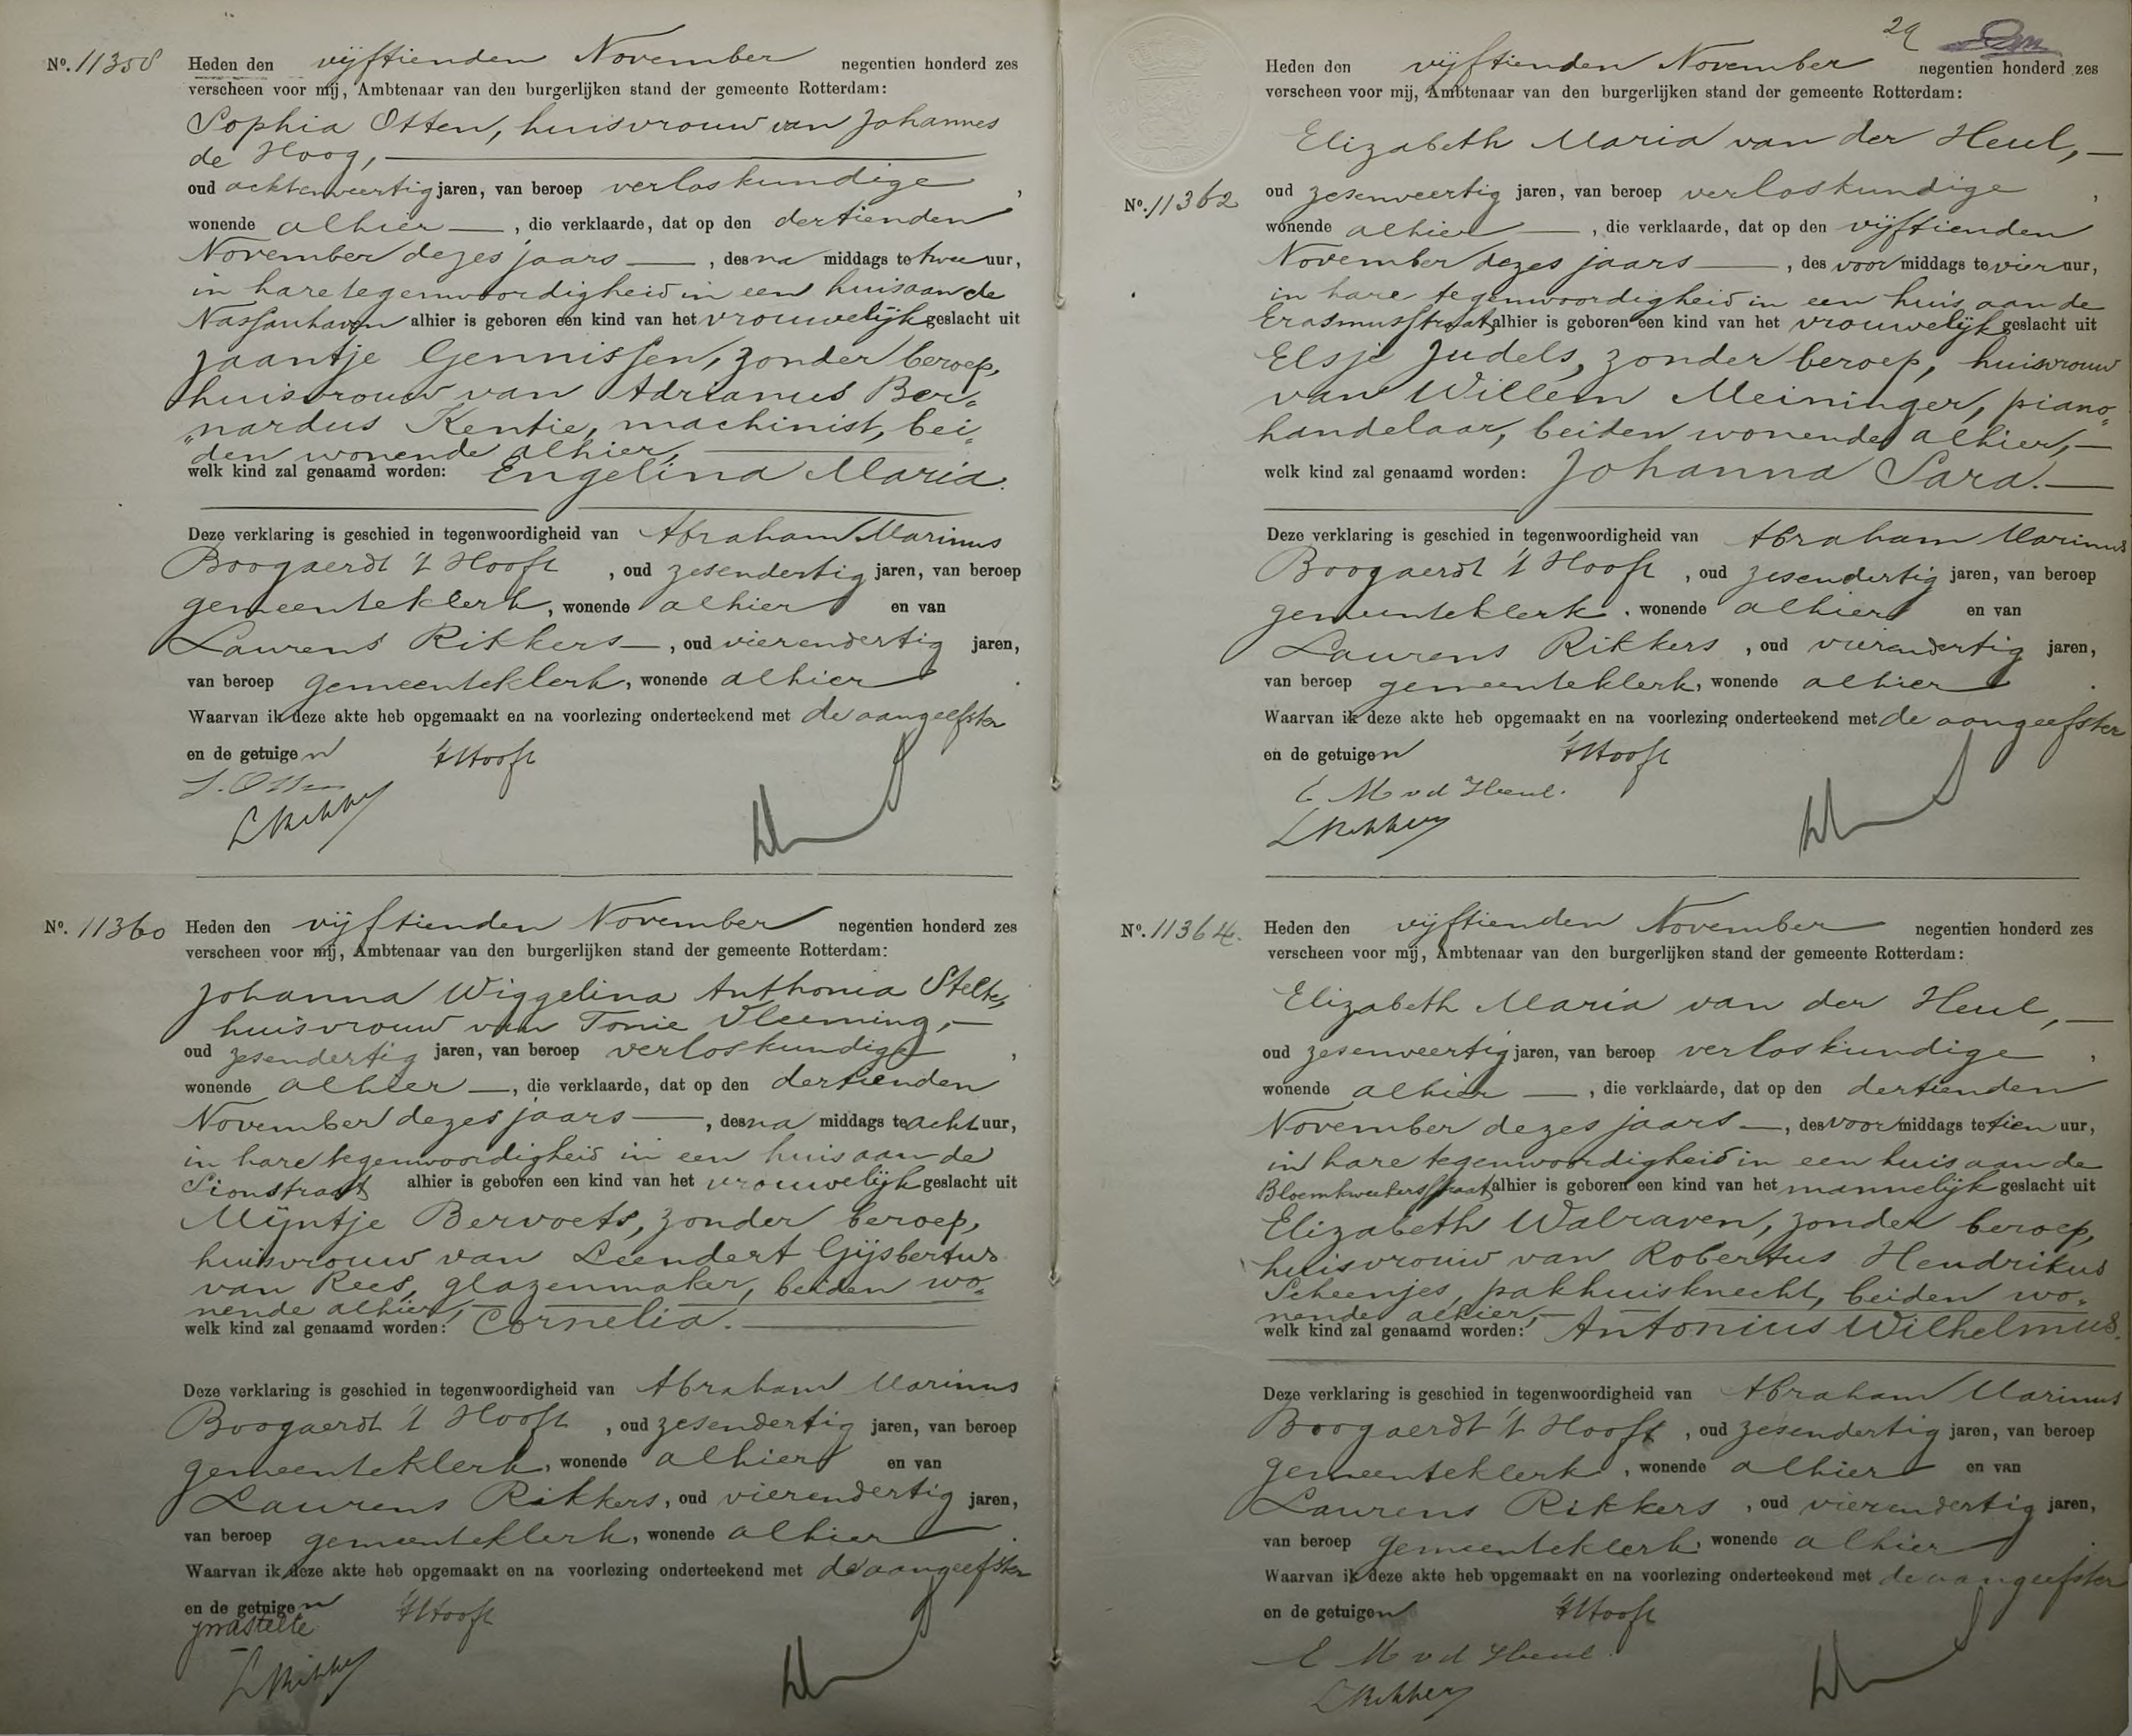 Nº. 11358 Heden den vijftienden November negentien honderd zes
verscheen voor mij, Ambtenaar van den burgerlijken stand der gemeente Rotterdam:
Sophia Otten, huisvrouw van Johannes
de Hoog,
oud achtenveertig jaren, van beroep verloskundige,
wonende alhier, die verklaarde, dat op den dertienden
November dezes jaars, des na middags te twee uur,
in hare tegenwoordigheid in een huis aan de
Nassauhaven alhier is geboren een kind van het vrouwelijk geslacht uit
Jaantje Gennissen, zonder beroep,
huisvrouw van Adrianus Ber„
„nardus Kentie, machinist, bei„
den wonende alhier,
welk kind zal genaamd worden: Engelina Maria.
Deze verklaring is geschied in tegenwoordigheid van Abraham Marinus
Boogaerdt 't Hooft, oud zesendertig jaren, van beroep
gemeenteklerk, wonende alhier en van
Laurens Rikkers, oud vierendertig jaren,
van beroep gemeenteklerk, wonende alhier.
Waarvan ik deze akte heb opgemaakt en na voorlezing onderteekend met de aangeefster
en de getuigen 't Hooft
S. Otten
L Rikkers
Nº. 11360 Heden den vijftienden November negentien honderd zes
verscheen voor mij, Ambtenaar van den burgerlijken stand der gemeente Rotterdam:
Johanna Wiggelina Anthonia Stelte,
huisvrouw van Tonie Vleeming,
oud zesendertig jaren, van beroep verloskundige,
wonende alhier, die verklaarde, dat op den dertienden
November dezes jaars, des na middags te acht uur,
in hare tegenwoordigheid in een huis aan de
Sionstraat alhier is geboren een kind van het vrouwelijk geslacht uit
Mijntje Bervoets, zonder beroep,
huisvrouw van Leendert Gijsbertus
van Rees, glazenmaker, beiden wo„
nende alhier,
welk kind zal genaamd worden: Cornelia.
Deze verklaring is geschied in tegenwoordigheid van Abraham Marinus
Boogaerdt 't Hooft, oud zesendertig jaren, van beroep
gemeenteklerk, wonende alhier en van
Laurens Rikkers, oud vierendertig jaren,
van beroep gemeenteklerk, wonende alhier.
Waarvan ik deze akte heb opgemaakt en na voorlezing onderteekend met de aangeefster
en de getuigen 't Hooft
JWAStelte
L Rikkers
29
Heden den vijftienden November negentien honderd zes
verscheen voor mij, Ambtenaar van den burgerlijken stand der gemeente Rotterdam:
Elizabeth Maria van der Heul,
Nº. 11362 oud zesenveertig jaren, van beroep verloskundige,
wonende alhier, die verklaarde, dat op den vijftienden
November dezes jaars, des voor middags te vier uur,
in hare tegenwoordigheid in een huis aan de
Erasmusstraat alhier is geboren een kind van het vrouwelijk geslacht uit
Elsje Judels, zonder beroep, huisvrouw
van Willem Meininger, piano„
handelaar, beiden wonende alhier,
welk kind zal genaamd worden: Johanna Sara.
Deze verklaring is geschied in tegenwoordigheid van Abraham Marinus
Boogaerdt 't Hooft, oud zesendertig jaren, van beroep
gemeenteklerk, wonende alhier en van
Laurens Rikkers, oud vierendertig jaren,
van beroep gemeenteklerk, wonende alhier.
Waarvan ik deze akte heb opgemaakt en na voorlezing onderteekend met de aangeefster
en de getuigen 't Hooft
E M v d Heul.
L Rikkers
Nº. 11364. Heden den vijftienden November negentien honderd zes
verscheen voor mij, Ambtenaar van den burgerlijken stand der gemeente Rotterdam:
Elizabeth Maria van der Heul,
oud zesenveertig jaren, van beroep verloskundige,
wonende alhier, die verklaarde, dat op den dertienden
November dezes jaars, des voor middags te tien uur,
in hare tegenwoordigheid in een huis aan de
Bloemkweekersstraat alhier is geboren een kind van het mannelijk geslacht uit
Elizabeth Walraven, zonder beroep,
huisvrouw van Robertus Hendrikus
Scheenjes, pakhuisknecht, beiden wo„
nende alhier,
welk kind zal genaamd worden: Antonius Wilhelmus.
Deze verklaring is geschied in tegenwoordigheid van Abraham Marinus
Boogaerdt 't Hooft, oud zesendertig jaren, van beroep
gemeenteklerk, wonende alhier en van
Laurens Rikkers, oud vierendertig jaren,
van beroep gemeenteklerk, wonende alhier.
Waarvan ik deze akte heb opgemaakt en na voorlezing onderteekend met de aangeefster
en de getuigen 't Hooft
E M v d Heul.
L Rikkers